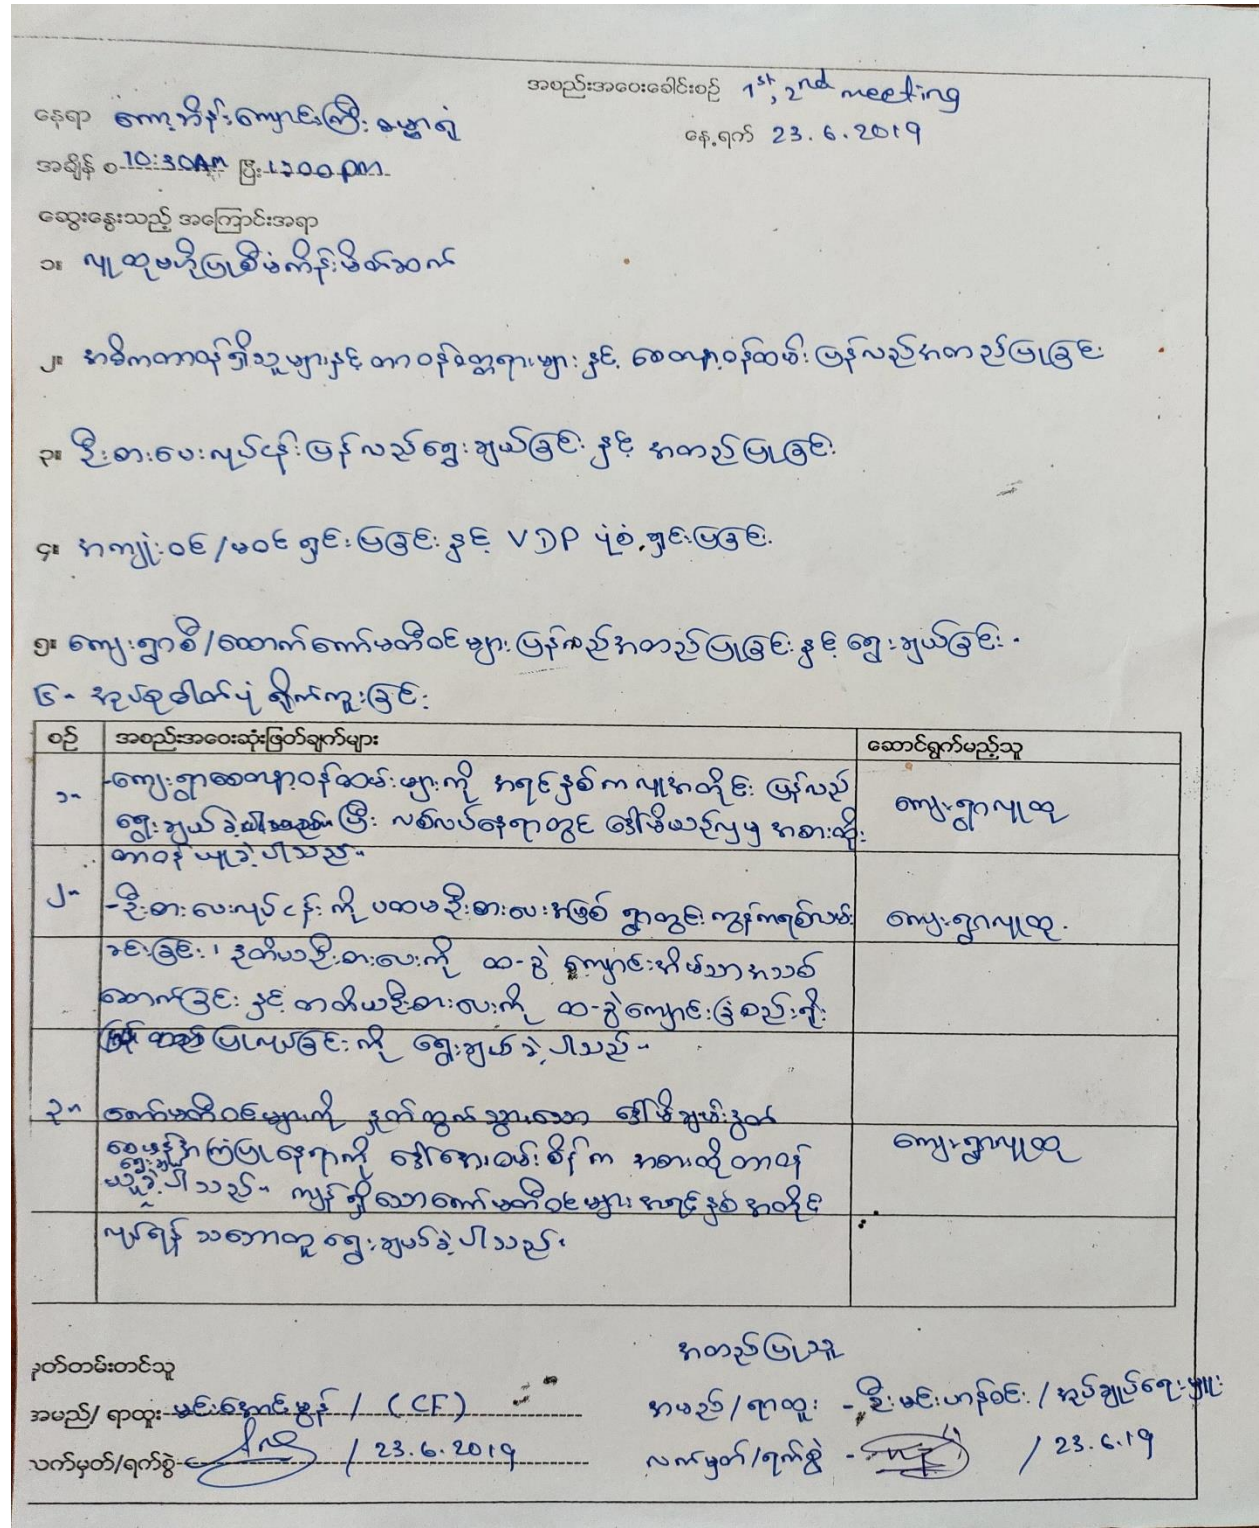 အစည်းအဝေးခေါင်းစဉ် 1st, 2nd meeting
နေရာ ကော့ဘိန်းကျောင်းကြီး ဓမ္မာရုံ
နေ့ရက် 23.6.2019
အချိန် စ 10:30AM ပြီး 12:00 pm
ဆွေးနွေးသည့် အကြောင်းအရာ
၁။ လူထုဗဟိုပြုစီမံကိန်းမိတ်ဆက်
၂။ အဓိကတာဝန်ရှိသူများနှင့် တာဝန်ဝတ္တရားများ နှင့် စေတနာ့ဝန်ထမ်း ပြန်လည်အတည်ပြုခြင်း
၃။ ဦးစားပေးလုပ်ငန်း ပြန်လည်ရွေးချယ်ခြင်း နှင့် အတည်ပြုခြင်း
၄။ အကျုံးဝင်/မဝင် ရှင်းပြခြင်း နှင့် VDP ပုံစံ ရှင်းပြခြင်း
၅။ ကျေးရွာစီ/ထောက်ကော်မတီဝင်များ ပြန်လည်အတည်ပြုခြင်း နှင့် ရွေးချယ်ခြင်း
၆။ အုပ်စုဓါတ်ပုံ ရိုက်ကူးခြင်း
စဉ် အစည်းအဝေးဆုံးဖြတ်ချက်များ ဆောင်ရွက်မည့်သူ
၁။ -ကျေးရွာစေတနာ့ဝန်ထမ်းများကို အရင်နှစ်က လူအတိုင်း ပြန်လည် ကျေးရွာလူထု
ရွေးချယ်ခဲ့ပြီး လစ်လပ်နေရာတွင် ဒေါ်မိယဉ်လှမှ အစားထိုး
တာဝန်ယူခဲ့ပါသည်။
၂။ -ဦးစားပေးလုပ်ငန်းကို ပထမဦးစားပေးအဖြစ် ရွာတွင်း ကွန်ကရစ်လမ်း ကျေးရွာလူထု
ခင်းခြင်း၊ ဒုတိယဦးစားပေးကို ထ-ခွဲ ကျောင်းအိမ်သာအသစ်
ဆောက်ခြင်း နှင့် တတိယဦးစားပေးကို ထ-ခွဲကျောင်းခြံစည်းရိုး
ပြုလုပ်ခြင်း ကို ရွေးချယ်ခဲ့ပါသည်။
၃။ ကော်မတီဝင်များကို နုတ်ထွက်သွားသော ဒေါ်မိချမ်း
နေရာကို ဒေါ်အေးဝမ်းစိန်က အစားထိုးတာဝန် ကျေးရွာလူထု
ယူခဲ့ပါသည်။ ကျန်ရှိသောကော်မတီဝင်များ အရင်နှစ်အတိုင်း
လုပ်ရန် သဘောတူရွေးချယ်ခဲ့ပါသည်။
အတည်ပြုသူ
မှတ်တမ်းတင်သူ
အမည်/ ရာထူး မင်းအောင်မွန် / (CF)
အမည်/ရာထူး - ဦးမင်းဟန်ဝင်း / အုပ်ချုပ်ရေးမှူး
လက်မှတ်/ရက်စွဲ / 23.6.2019
လက်မှတ်/ရက်စွဲ - / 23.6.19